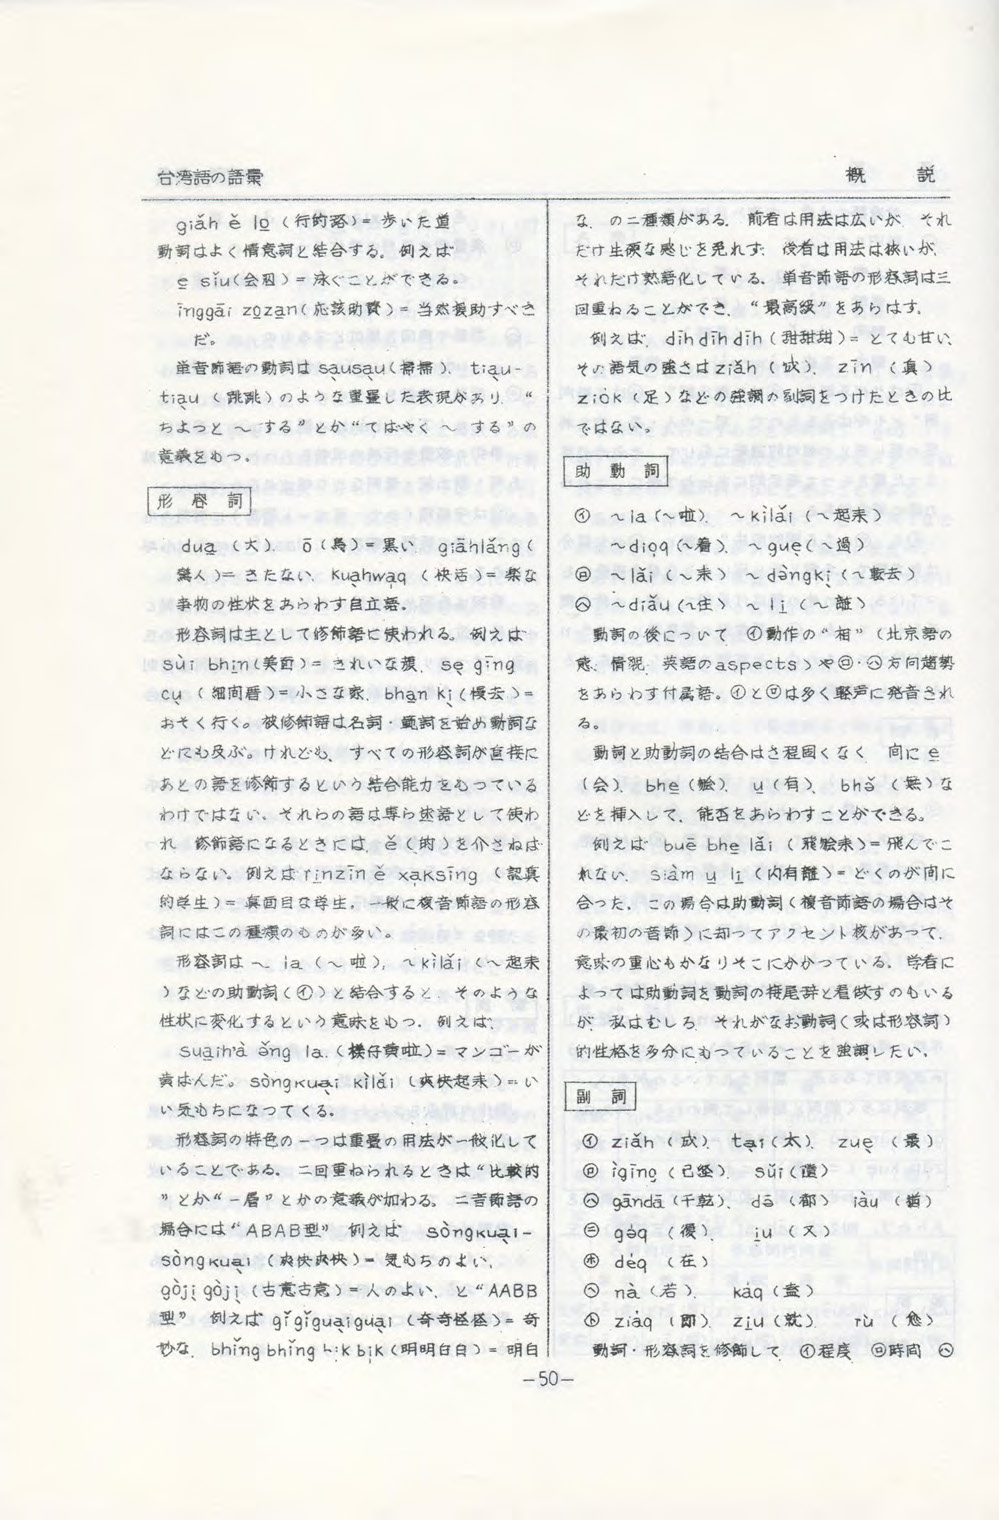 台湾語の語彙
概 説
giǎh ě lo̱ (行的路)= 歩いた道
動詞はよく情意詞と結合する。例えば
e̱ sǐu(会泅)= 泳ぐことができる。
īnggāi zo̱za̱n(応該助賛)= 当然援助すべき
だ。
単音節語の動詞は sa̱usa̱u(掃掃)、tia̱u-
tia̱u (跳跳)のような重畳した表現があり、"
ちょっと〜する"とか"てばやく〜する"の
意義をもつ。
形 容 詞
dua̱ (大)、ō(烏)=黒い、giāhlǎng(
人)= きたない、kuạhwạq (快活)= 楽な
事物の性状をあらわす自立語。
形容詞は主として修飾語に使われる。例えば
sùi bhịn(美面)= きれいな顔、sẹ gīng
cụ (細間厝)= 小さな家、bha̱n kị(慢去)=
おそく行く。被修飾語は名詞・範詞を始め動詞な
どにも及ぶ。けれども、すべての形容詞が直接に
あとの語を修飾するという結合能力をもっている
わけではない。それらの語は専ら述語として使わ
れ、修飾語になるときには、ě(的)を介さねば
ならない。例えば ri̱nzīn ě xa̱ksīng (認真
的学生)= 真面目な学生。一般に複音節語の形容
詞にはこの種類のものが多い。
形容詞は 〜 la (〜啦)、〜kìlǎi(〜起来
)などの助動詞(㋑)と結合すると、そのような
性状に変化するという意味をもつ。例えば、
sua̱ih'à ňng la.(檨仔黄啦)= マンゴーが
黄ばんだ。sòngkuại kìlǎi (爽快起来)= い
い気もちになってくる。
形容詞の特色の一つは重畳の用法が一般化して
いることである。二回重ねられるときは"比較的
"とか"一層"とかの意義が加わる。二音節語の
場合には"ABAB型" 例えば sòngkuại-
sòngkuại (爽快爽快)= 気もちのよい、
gòjị gòjị (古意古意)=人のよい、と"AABB
型" 例えば gǐgǐguạiguại (奇奇怪怪)= 奇
妙な、bhǐng bhǐng bịk bịk (明明白白)= 明白
な、の二種類がある。前者は用法は広いが、それ
だけ生硬な感じを免れず、後者は用法は狭いが、
それだけ熟語化している。単音節語の形容詞は三
回重ねることができ、"最高級"をあらわす。
例えば、dīh dīh dīh (甜甜甜)= とても甘い、
その語気の強さは ziǎh (成)、zīn (真)
ziòk (足)などの強調の副詞をつけたときの比
ではない。
助 動 詞
㋑ 〜la (〜啦)、〜kìlǎi (〜起来)
〜dioq(〜着)、〜guẹ(〜過)
㋺ 〜lǎi (〜来)、〜dǹgkị (〜転去)
㋩ 〜diǎu (〜住)、〜li̱ (〜離)
動詞の後について、㋑動作の"相"(北京語の
態、情況、英語の aspects)や㋺・㋩方向趨勢
をあらわす付属語。㋑と㋺は多く軽声に発音され
る。
動詞と助動詞の結合はさ程固くなく、間に e̱
(会)、bhe̱ (𣍐)、u̱ (有)、bhǒ (無)な
どを挿入して、能否をあらわすことができる。
例えば buē bhe̱ lǎi (飛𣍐来)= 飛んでこ
れない、siàm u̱ li̱ (閃有離)= どくのが間に
合った。この場合は助動詞(複音節語の場合はそ
の最初の音節)に却ってアクセント核があって、
意味の重心もかなりそこにかかっている。学者に
よっては助動詞を動詞の接尾辞と看做すのもいる
が、私はむしろ、それがなお動詞(或は形容詞)
的性格を多分にもっていることを強調したい。
副 詞
㋑ ziǎh (成)、tại(太)、zuẹ (最)
㋺ ìgīng (已経)、sǔi(隨)
㋩ gāndā (干乾)、dō (都)、iàu (猶)
㋥ gòq (復)、iu̱ (又)
㋭ deq (在)
㋬ nà (若)、kàq (盍)
㋣ ziàq (即)、zịu (就)、rù (愈)
動詞・形容詞を修飾して、㋑程度 ㋺時間 ㋩
—50—